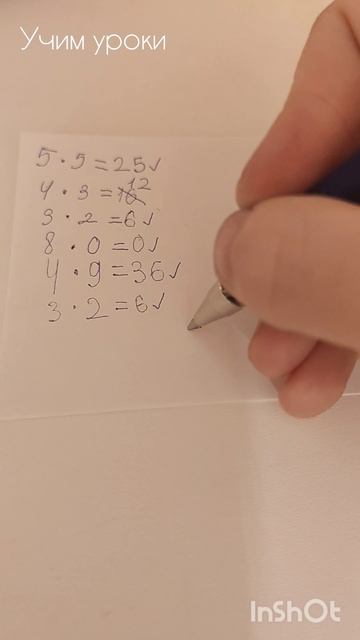 Учим уроки
5 · 5 = 25 ✓
4 · 3 = 16 12
3 · 2 = 6 ✓
8 · 0 = 0 ✓
4 · 9 = 36 ✓
3 · 2 = 6 ✓
InShOt